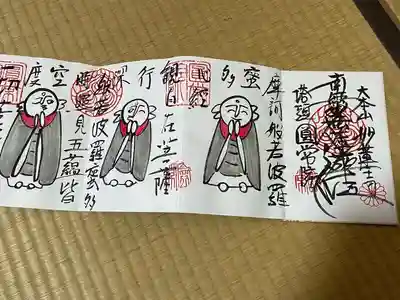 大本山妙蓮寺
南無妙法蓮華経
塔頭 圓常院
摩訶般若波羅
蜜多
観自在菩薩
行深
般若波羅蜜多
時照見五蘊皆
空度
一切